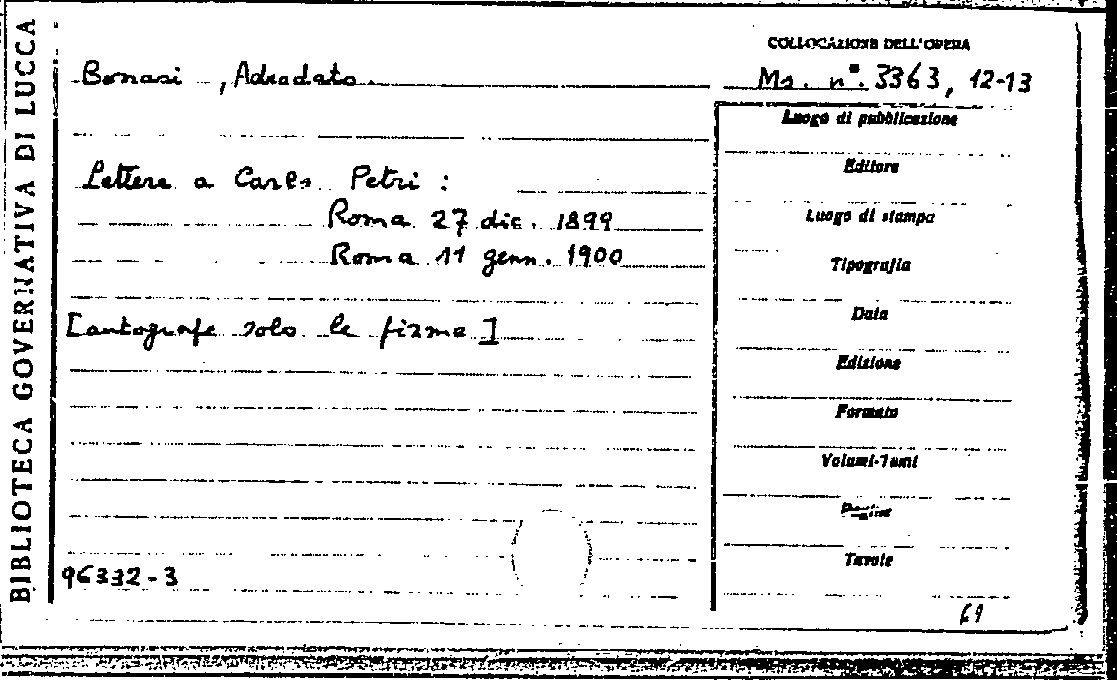 BIBLIOTECA GOVERNATIVA DI LUCCA
Bonasi, Adeodato.
Lettere a Carlo Petri:
Roma 27 dic. 1899
Roma 11 genn. 1900
[autografe solo le firme]
96332-3
COLLOCAZIONE DELL'OPERA
Ms. n°. 3363, 12-13
Luogo di pubblicazione
Editore
Luogo di stampa
Tipografia
Data
Edizione
Formato
Volumi-Tomi
Pagine
Tavole
69